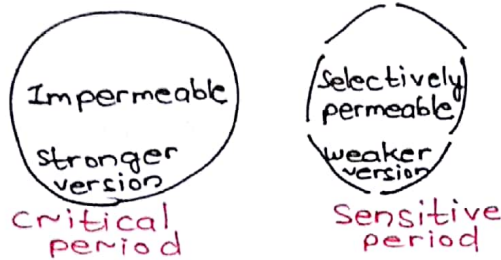 Impermeable
stronger
version
Critical
period
Selectively
permeable
weaker
version
Sensitive
period